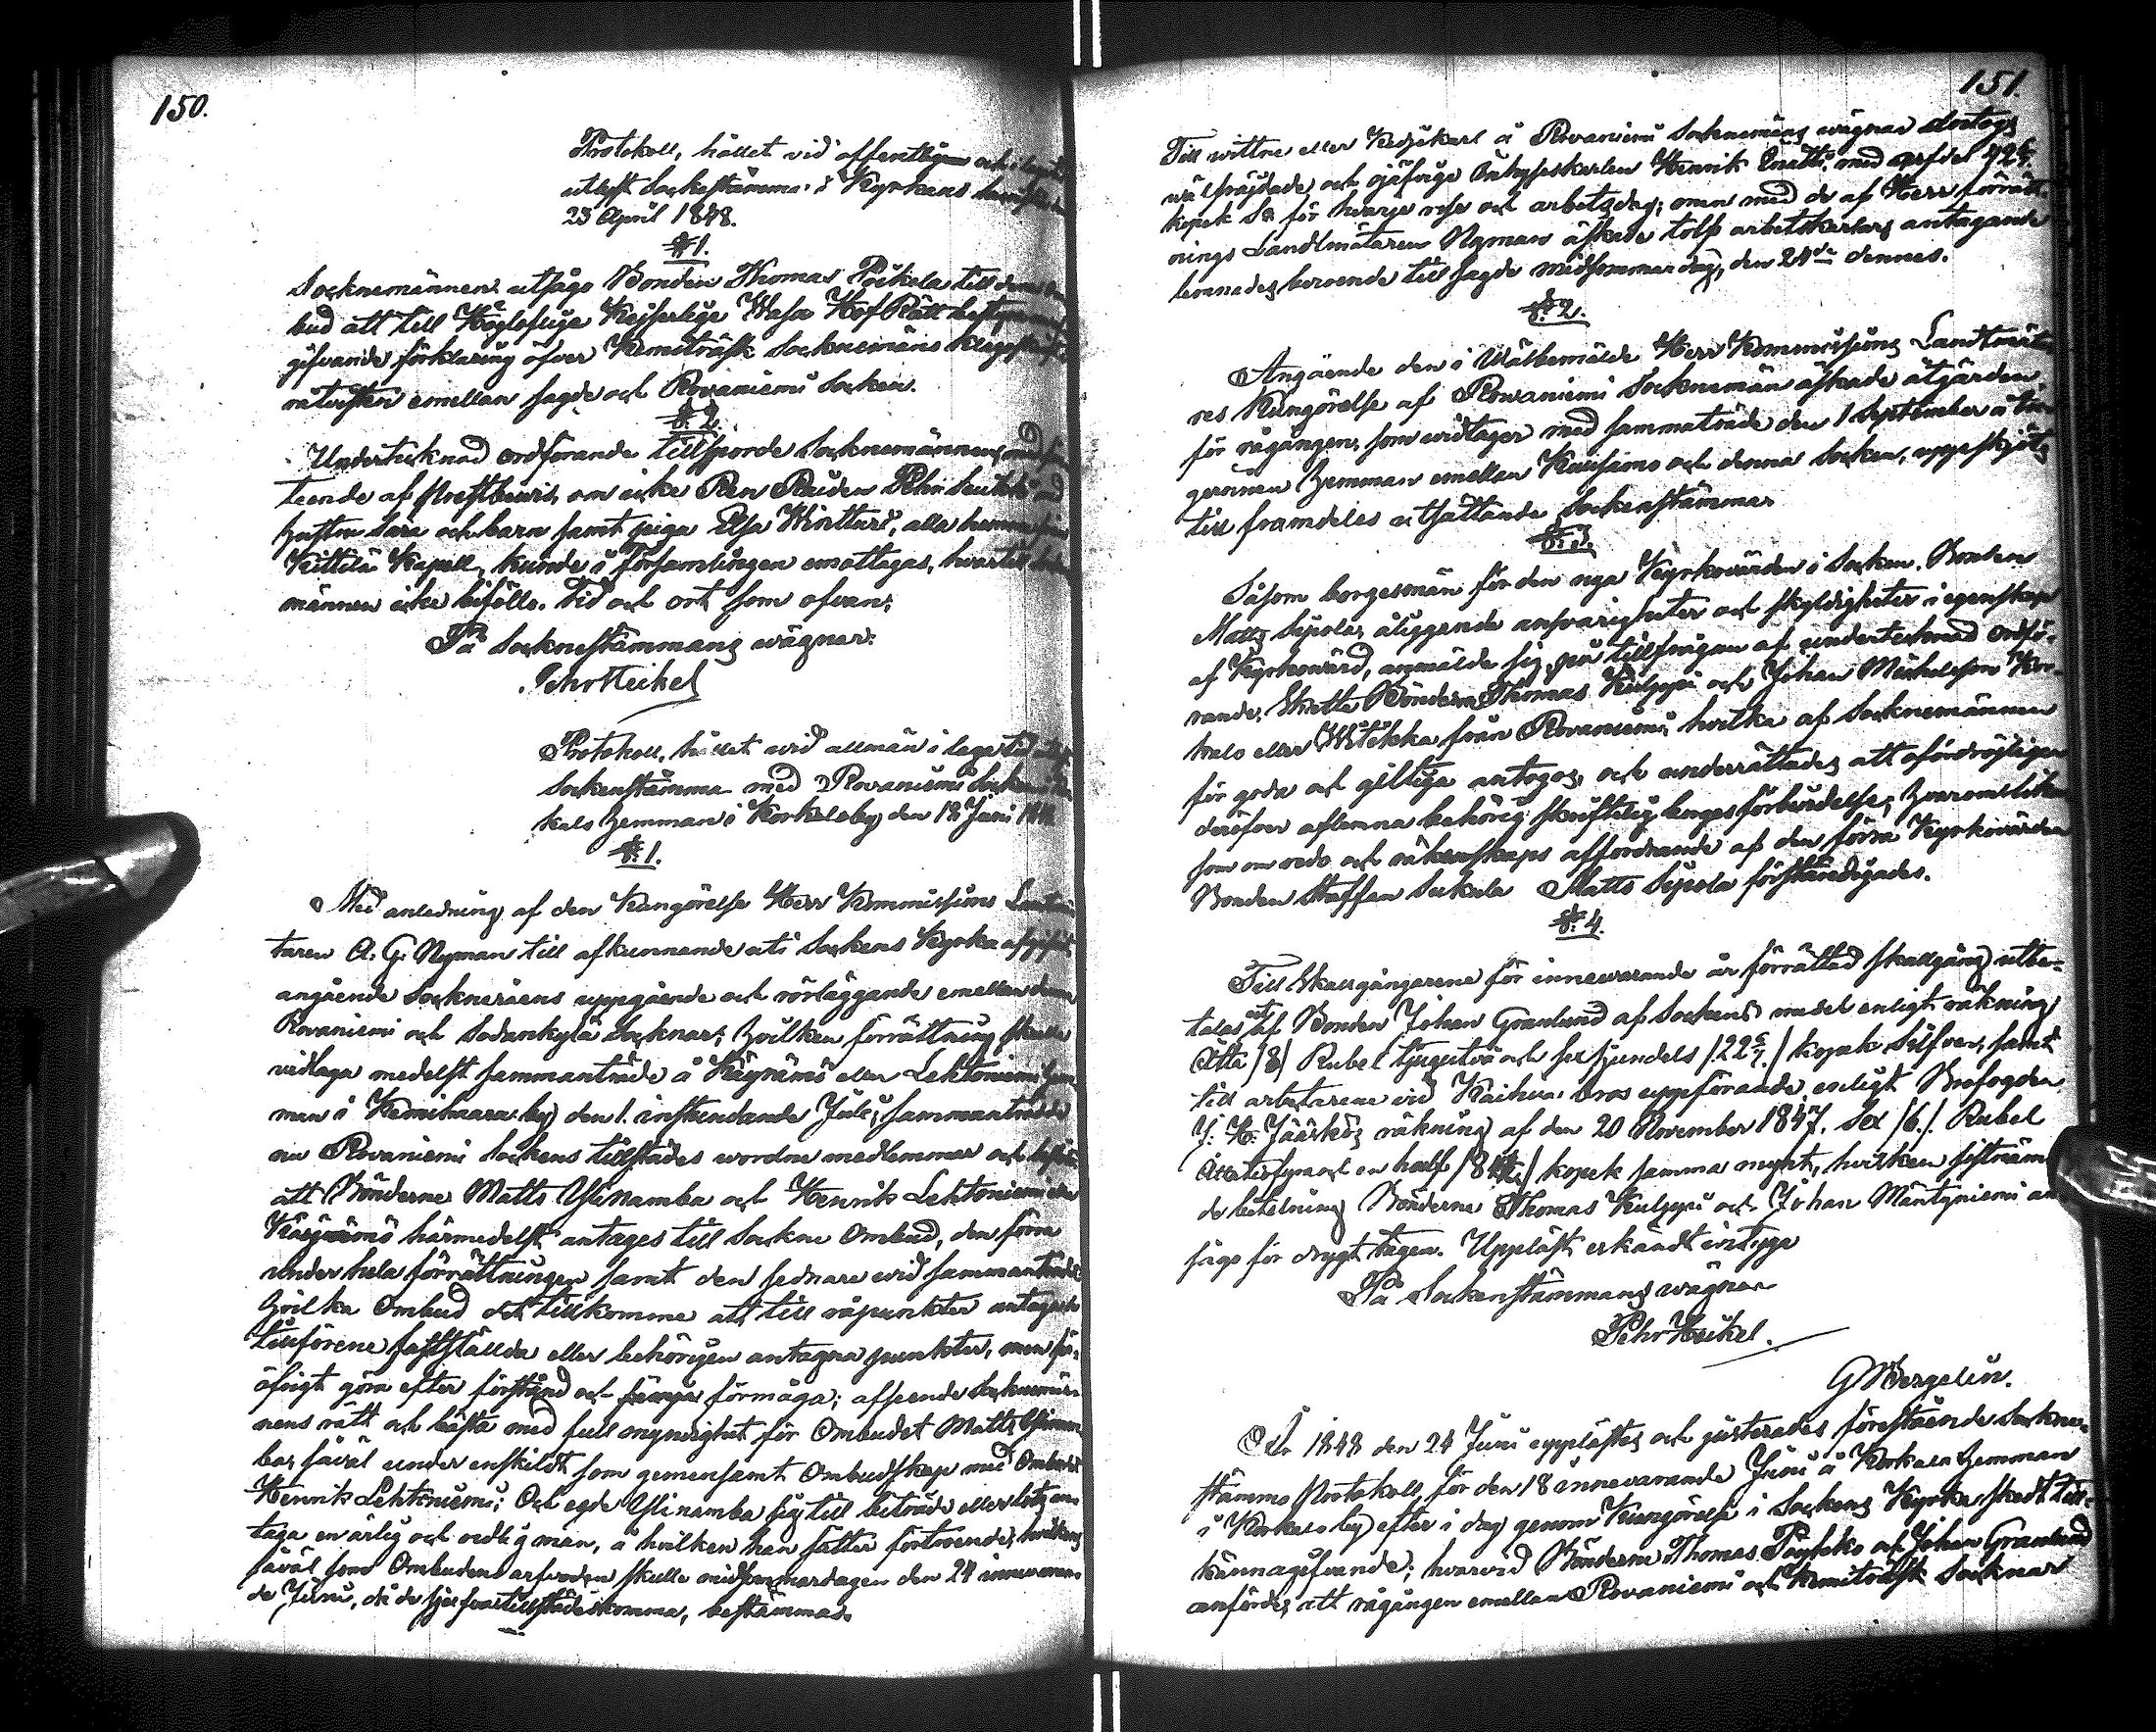 150.
Protokoll, hållet vid offentligen och i laga tid
utlyst Sockestämma i Kyrkans
23 April 1848.
§ 1.
Socknemännen utsågo Bonden Thomas Pöckela till deras Om
bud att till Höglofliga Kejserliga Wasa HofRätt
gifvande förklaring öfver Kemiträsk Socknemäns
råtvisten emellan sagde och Rovaniemi Socken.
§ 2.
Undertecknad ordförande tillsporde Socknemännen,
teende af Prestbevis, om icke Ren Raiden Pehr
hustru Sara och barn samt piga Elsa Wirttari, alla hemma från
Kittilä Kapell, kunde i församlingen emottagas, hvartill Socke
männen icke biföllo. Tid och ort som ofvan.
På Socknestämmans wägnar:
Pehr Heikel
Protokoll, hållet wid allmän i laga tid utlyst
Sockenstämma med Rovaniemi Socken
kalo hemman i Korkalo by den 18 Juni 1848.
§. 1.
Med anledning af den Kungörelse Herr Kommissions Landtmä
taren A. G. Nyman till afkunnande uti Sockens Kyrka afgifvit
angående Sockneråens uppgående och rörläggande emellan denna
Rovaniemi och Sodankylä Socknar; hvilken förrättning skulle
vidtaga medelst sammanträde å Käyrämö eller Lehtoniemi hem
man i Kemihaara by den 1. instundande Julii, sammanträdde
nu Rovaniemi Sockens tillstädes wordne medlemmar och
att Bönderne Matts Ylinamba och Henrik Lehtoniemi
Käyrämö härmedelst antages till Sockne Ombud, den förre
under hela förrättningen samt den sednare wid sammanträdet
hvilka Ombud det tillkomme att till råpunkter antaga
tillförene fastställda eller behörigen antagna punkter, men för
öfrigt göra efter förstånd och förmåga; afseende Socknemän
nens rätt och bästa med full myndighet för Ombudet Matts Ylinam
ba, såväl under enskildt som gemensamt Ombudskap med Ombudet
Henrik Lehtoniemi; Och egde Ylinamba sig till biträde eller
taga en ärlig och redlig man, å hvilken han sätter förtroende, hvilkens
såväl som Ombudens arfvoden skulle midsommardagen den 24 innevaran
de Juni, då de tillstädeskomma, bestämmas.
151.
Till wittne eller Kedjekarl å Rovaniemi Socknemäns wägnar antogs
wälfrejdade och ojäfvige Inhyseskarlen Henrik med arfvde
kopek Sr för hvarje resa och arbetsdag; men med de af Herr förrätt
nings Landtmätaren Nyman äskade tolf arbetskarlars antagande
lemnades beroende till sagde midsommardag, den 24de dennes.
§. 2.
Angående den i Wälbemälde Herr Kommissions Landtmäta
res Kungörelse af Rovaniemi Socknemän äskade åtgärden
för rågången, som widtager med sammaträde den 1 September å
hemman emellan Kuusamo och denna Socken, uppskjöts
till framdeles utsättande Sockenstämma
§. 3.
Såsom borgesmän för den nya Kyrkovärden i Socken, Bonden
Matts Sipolas åliggande ansvarigheter och skyldigheter i egenskap
af Kyrkovärd, anmälde sig, på tillfrågan af undertecknad ordfö-
rande, Bönderne Thomas Kulppi och Johan Mickelsson Kor-
kalo eller Wiickka från Rovaniemi, hvilka af Socknemännen
för goda och giltiga antogos, och underrättades att oförtröjligen
deröfver aflemna behörig skriftelig borgesförbindelse, hvaromlika
som om redo och räkenskaps affordrande af den förra Kyrkovärden
Bonden Staffan Matts Sipola förständigades.
§. 4.
Till Skallgångarene för innewarande år förrättad skallgång utbe-
talas utaf Bonden Johan Granlund af Sockens medel enligt räkning
Åtta /8/ Rubel tjugutvå och sex sjundels /22 6/7/ kopek Silfver, samt
till arbetarene vid Kaihua bros uppförande, enligt Brofogden
J. H. Jääskös räkning af den 20 November 1847. Sex /6./ Rubel
Åttatiofyra och en half /84½/ kopek samma mynt, hvilken sistnäm
de betalning Bönderne Thomas Kulppi och Johan Mäntyniemi an
sågo för drygt tagen. Uppläst, erkändt intyga
På Sockenstämmans wägnar
Pehr Heikel.
G Bergelin.
År 1848 den 24 Juni upplästes och justerades förestående Sockne-
stämmo Protokoll, för den 18 innevarande Juni å Korkalo hemman
i Korkalo by efter i dag genom Kungörelse i Sockens Kyrka skedt till-
kännagifvande; hvarvid Bönderne Thomas och Johan Granlund
anfördes att rågången emellan Rovaniemi och Kemiträsk Socknar